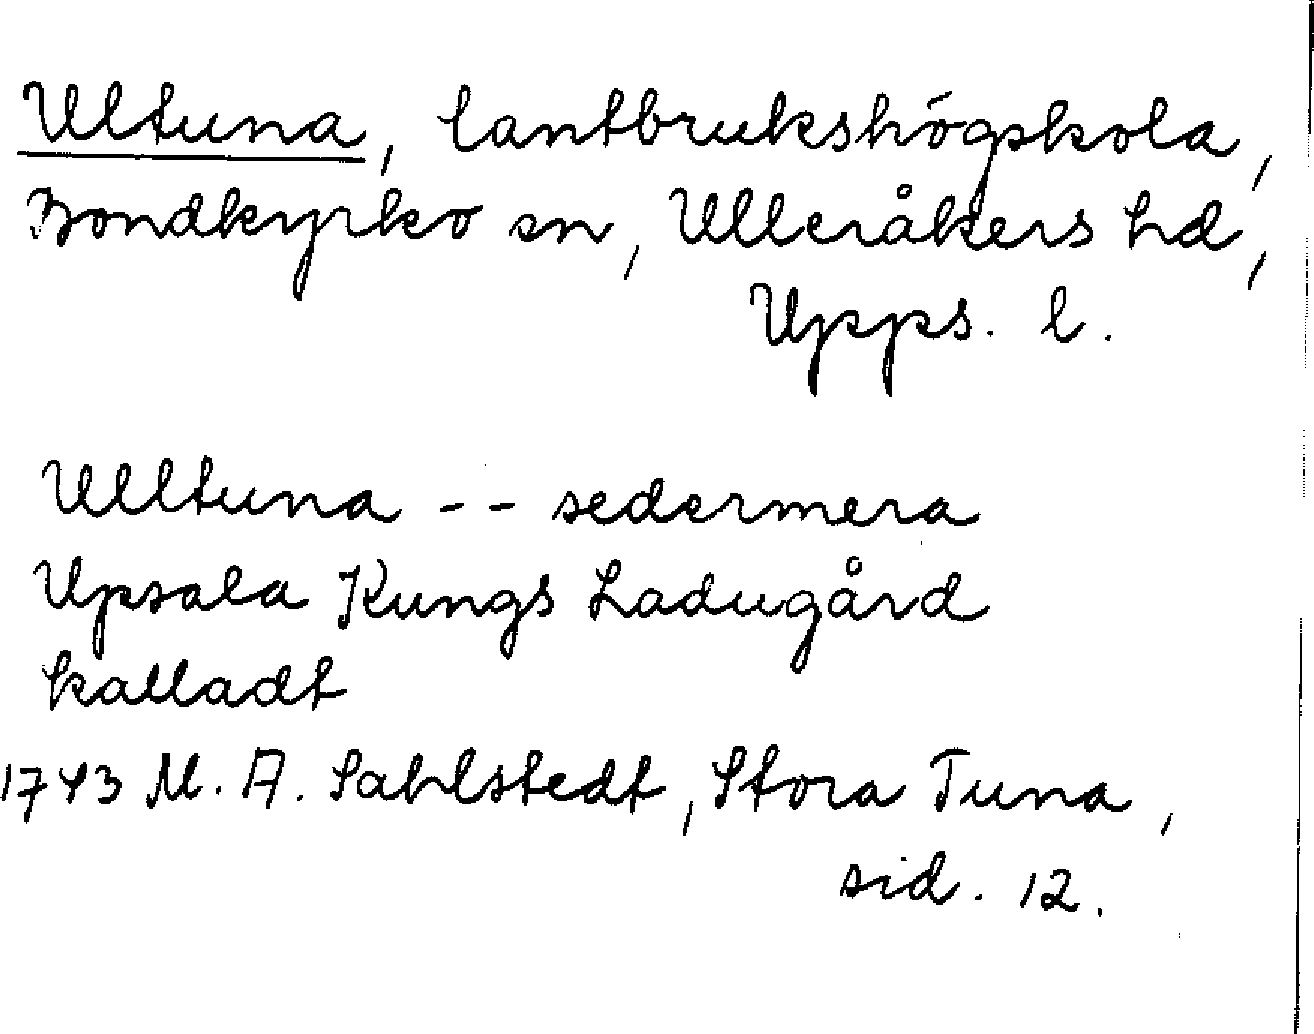 Ultuna, lantbrukshögskola,
Bondkyrko sn, Ulleråkers hd,
Upps. l.
Ulltuna -- sedermera
Upsala Kungs Ladugård
kalladt
1743 M. A. Sahlstedt, Stora Tuna,
sid. 12.